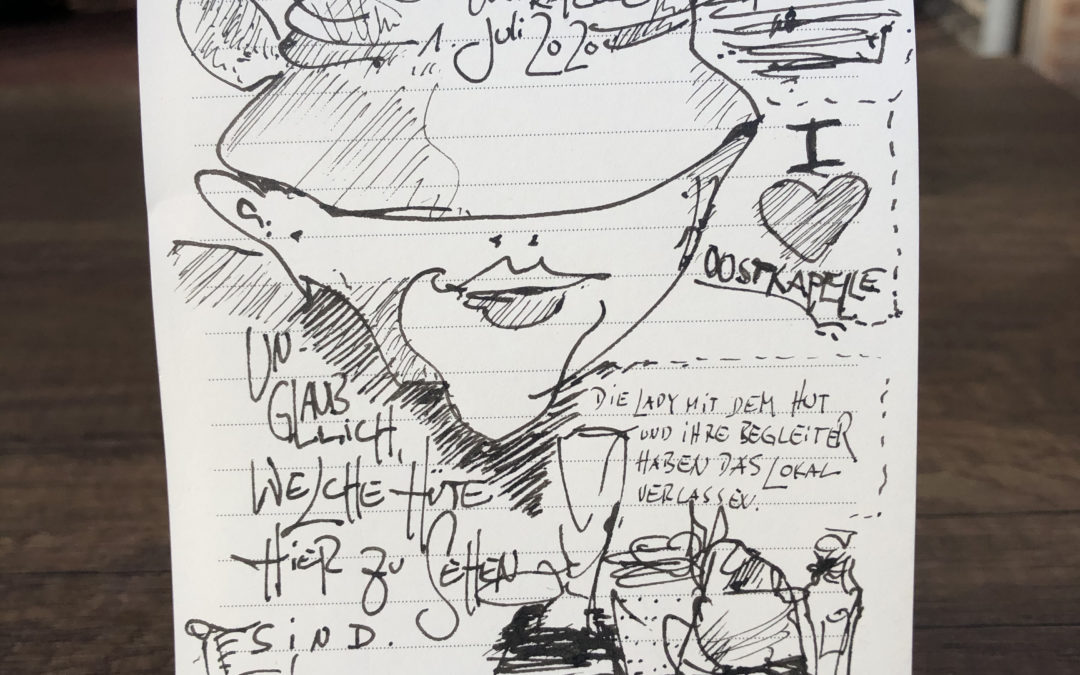 1. Juli 2020
I
OOSTKAPELLE
UN-
GLAUB
LLICH,
WELCHE HÜTE
HIER ZU SEHEN
SIND.
DIE LADY MIT DEM HUT
UND IHRE BEGLEITER
HABEN DAS LOKAL
VERLASSEN.